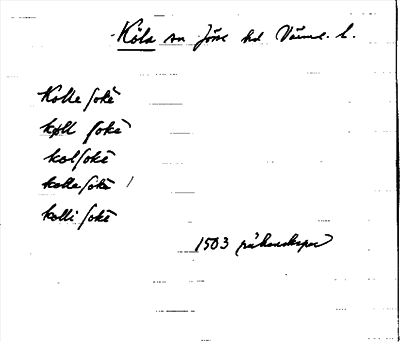 Köla sn Jösse hd Värml. l.
Kolle sokē
køll sokē
kolsokē
kolle sokē /
kolli sokē
1503 räkenskaper